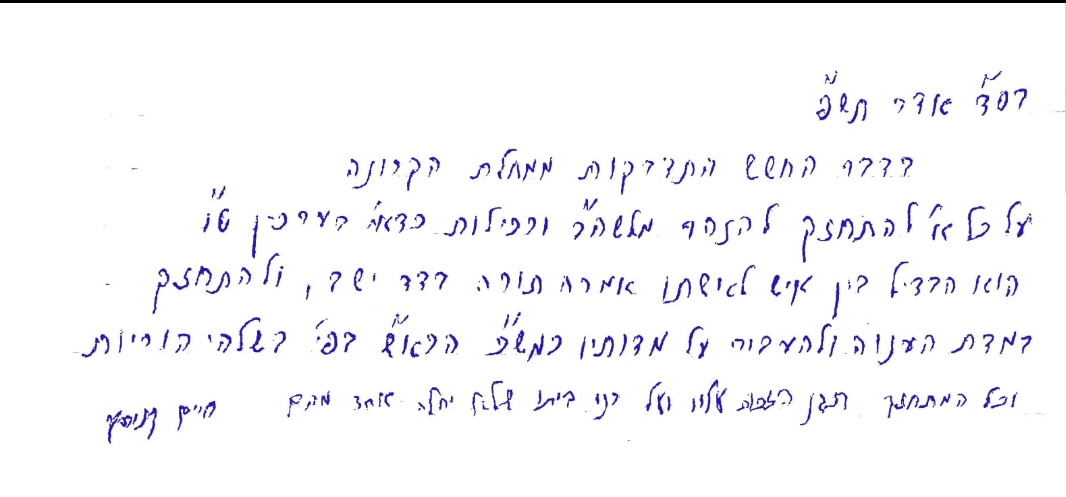 בס"ד אדר תש"פ
בדבר החשש התדבקות ממחלת הקרונה
על כל א' להתחזק להזהר מלשה"ר ורכילות כדאי' בערכין ט"ו
הוא הבדיל בין איש לאישתו אמרה תורה בדד ישב, ולהתחזק
במדת הענוה ולהעביר על מדותיו כמש"כ הרא"ש בפי' בשלהי הוריות
וכל המתחזק תגן הזכות עליו ועל בני ביתו שלא יחלה אחד מהם חיים קניבסקי